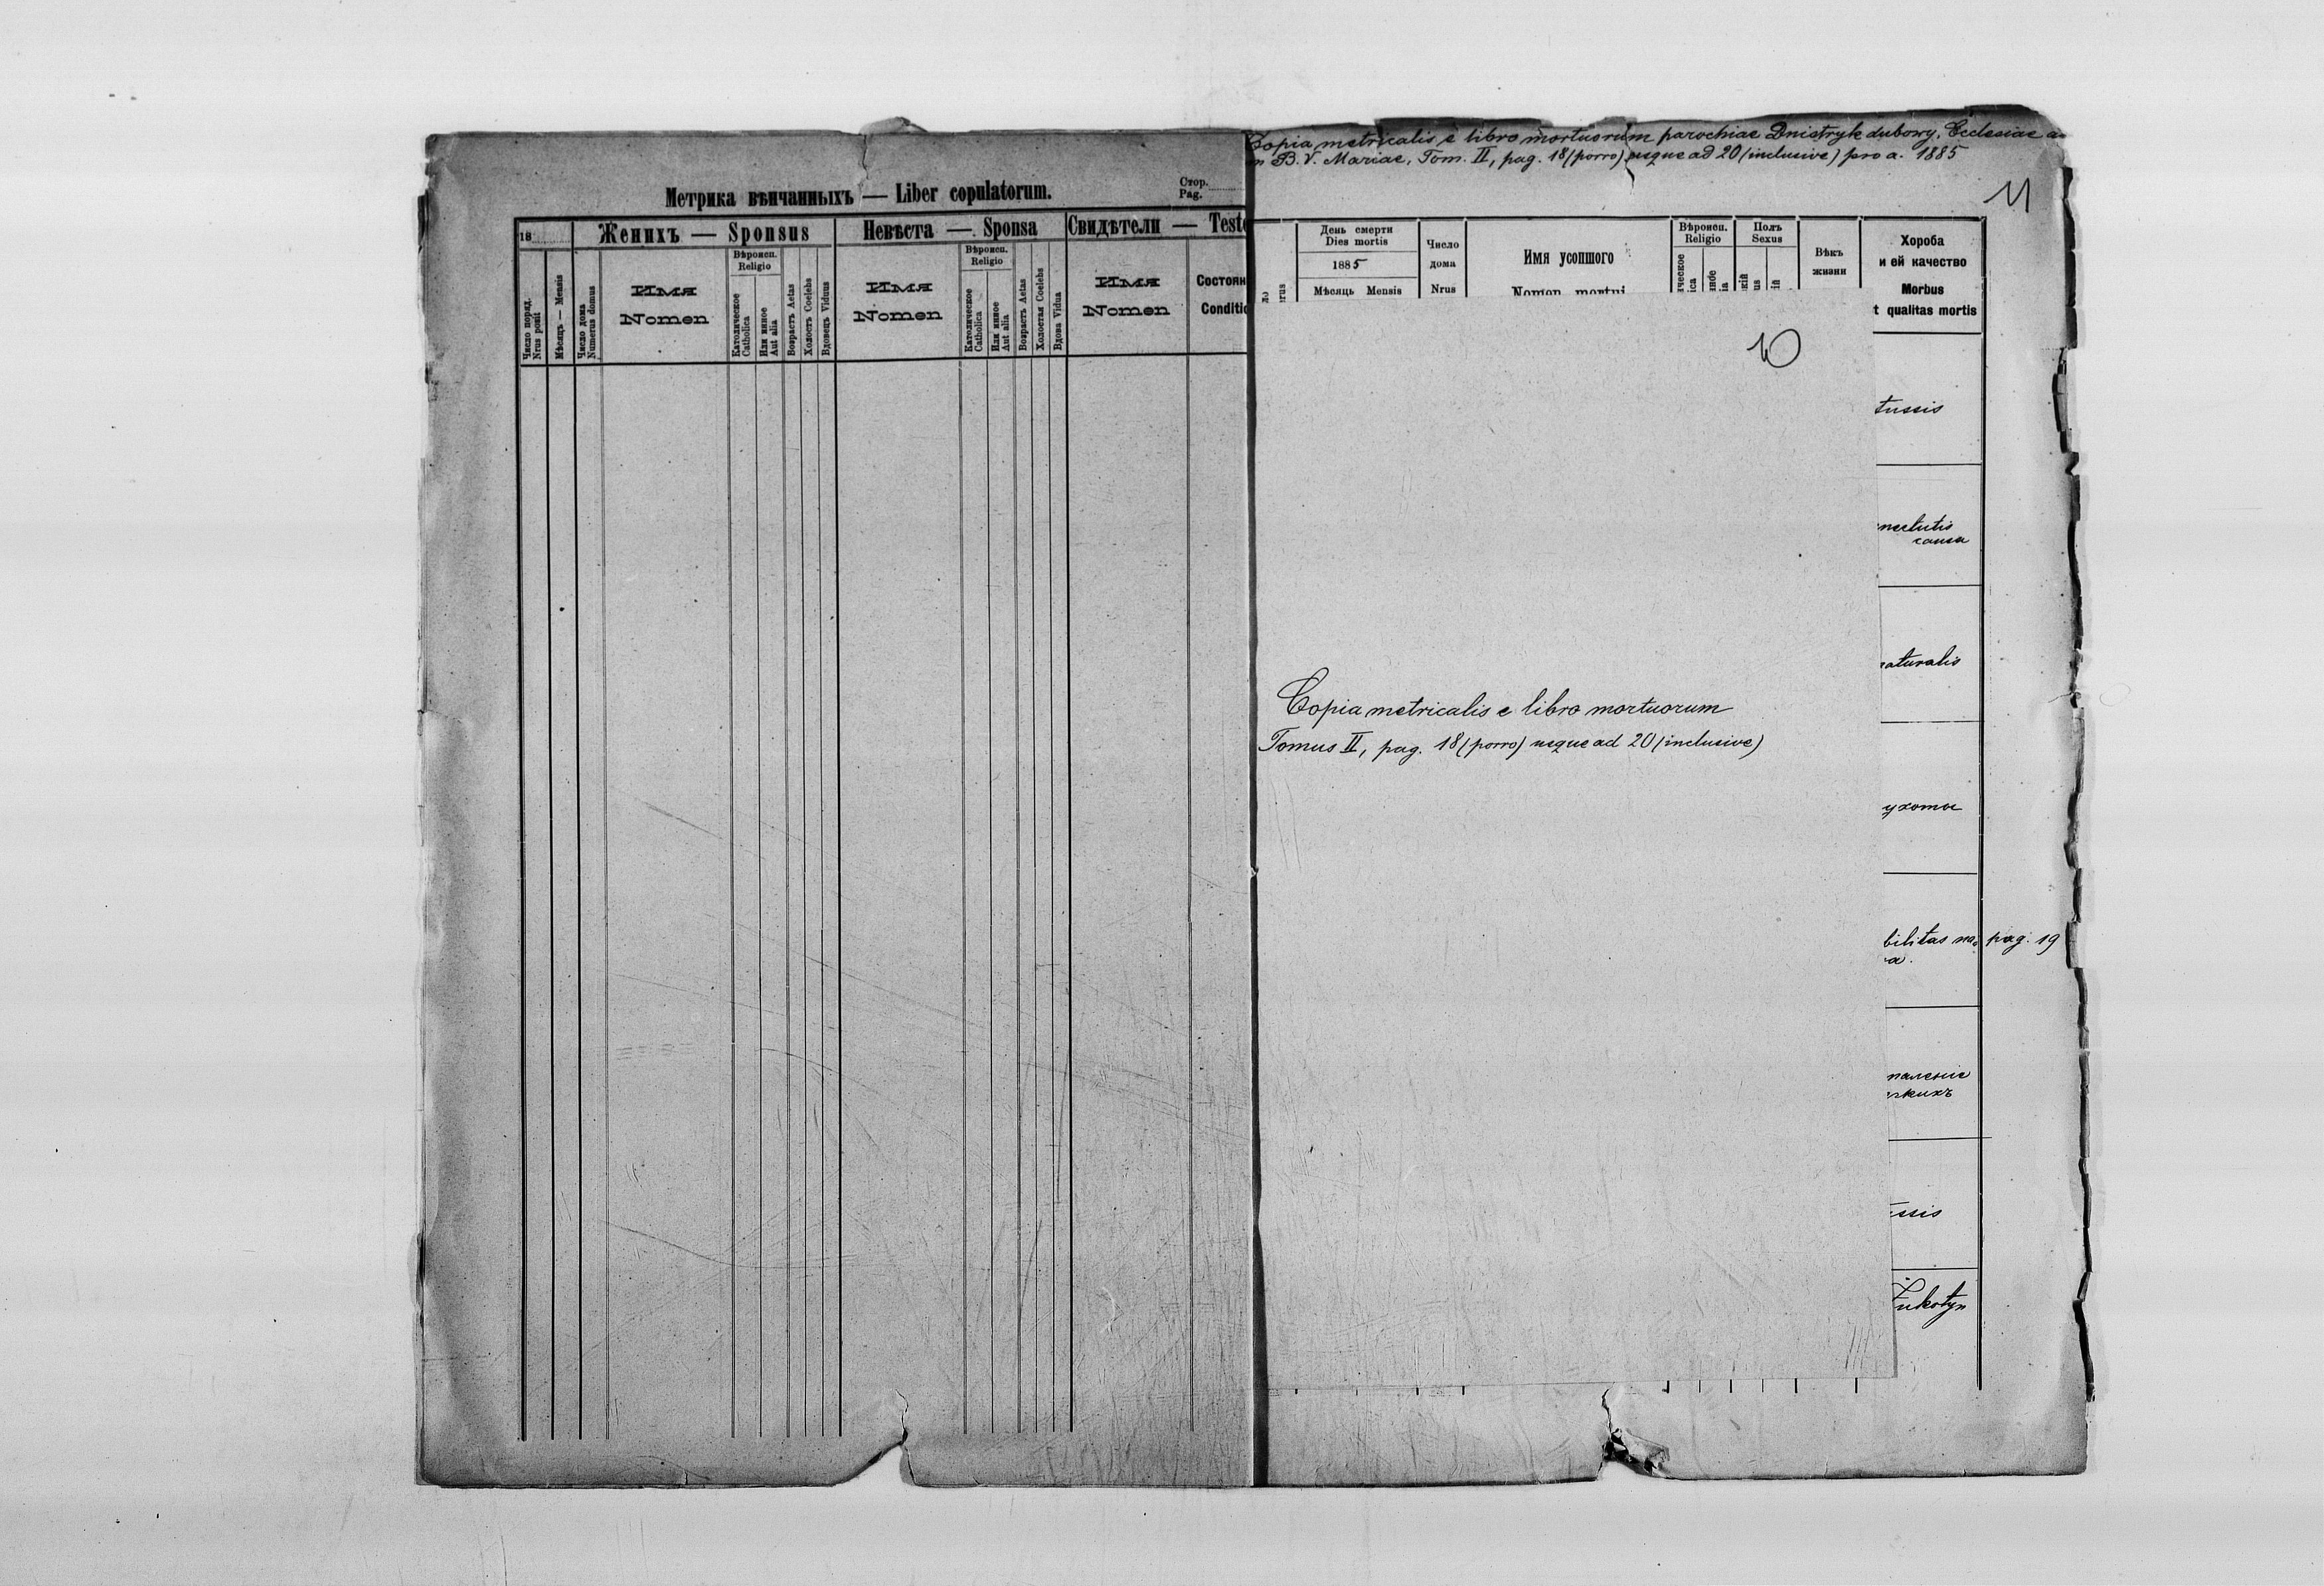 Метрика вѣнчанныхъ — Liber copulatorum.
Стор.
Pag.
18
Женихъ — Sponsus
Невѣста — Sponsa
Свидѣтели — Teste
Число поряд.
Nrus posit
Мѣсяцъ — Mensis
Число дома
Numerus domus
Имя
Nomen
Вѣроисп.
Religio
Католическое
Catholica
Или иное
Aut alia
Возрастъ Aetas
Холостъ Coelebs
Вдовецъ Viduus
Имя
Nomen
Вѣроисп.
Religio
Католическое
Catholica
Или иное
Aut alia
Возрастъ Aetas
Холостая Coelebs
Вдова Vidua
Имя
Nomen
Состоян
Conditio
Copia metricalis e libro mortuorum parochiae Dnistryk dubowy, Ecclesiae
B. V. Mariae, Tom. II, pag. 18 (porro) usque ad 20 (inclusive) pro a. 1885
11
День смерти
Dies mortis
1885
Мѣсяць Mensis
Число
дома
Nrus
Имя усопшого
Nomen mortui
Вѣроисп.
Religio
Полъ
Sexus
Вѣкъ
жизни
Хороба
и ей качество
Morbus
t qualitas mortis
10
tussis
nectutis
causa
naturalis
ухоты
Copia metricalis e libro mortuorum
Tomus II, pag. 18 (porro) usque ad 20 (inclusive)
bilitas na
a.
pag. 19
паленіе
ssis
Żukotyn